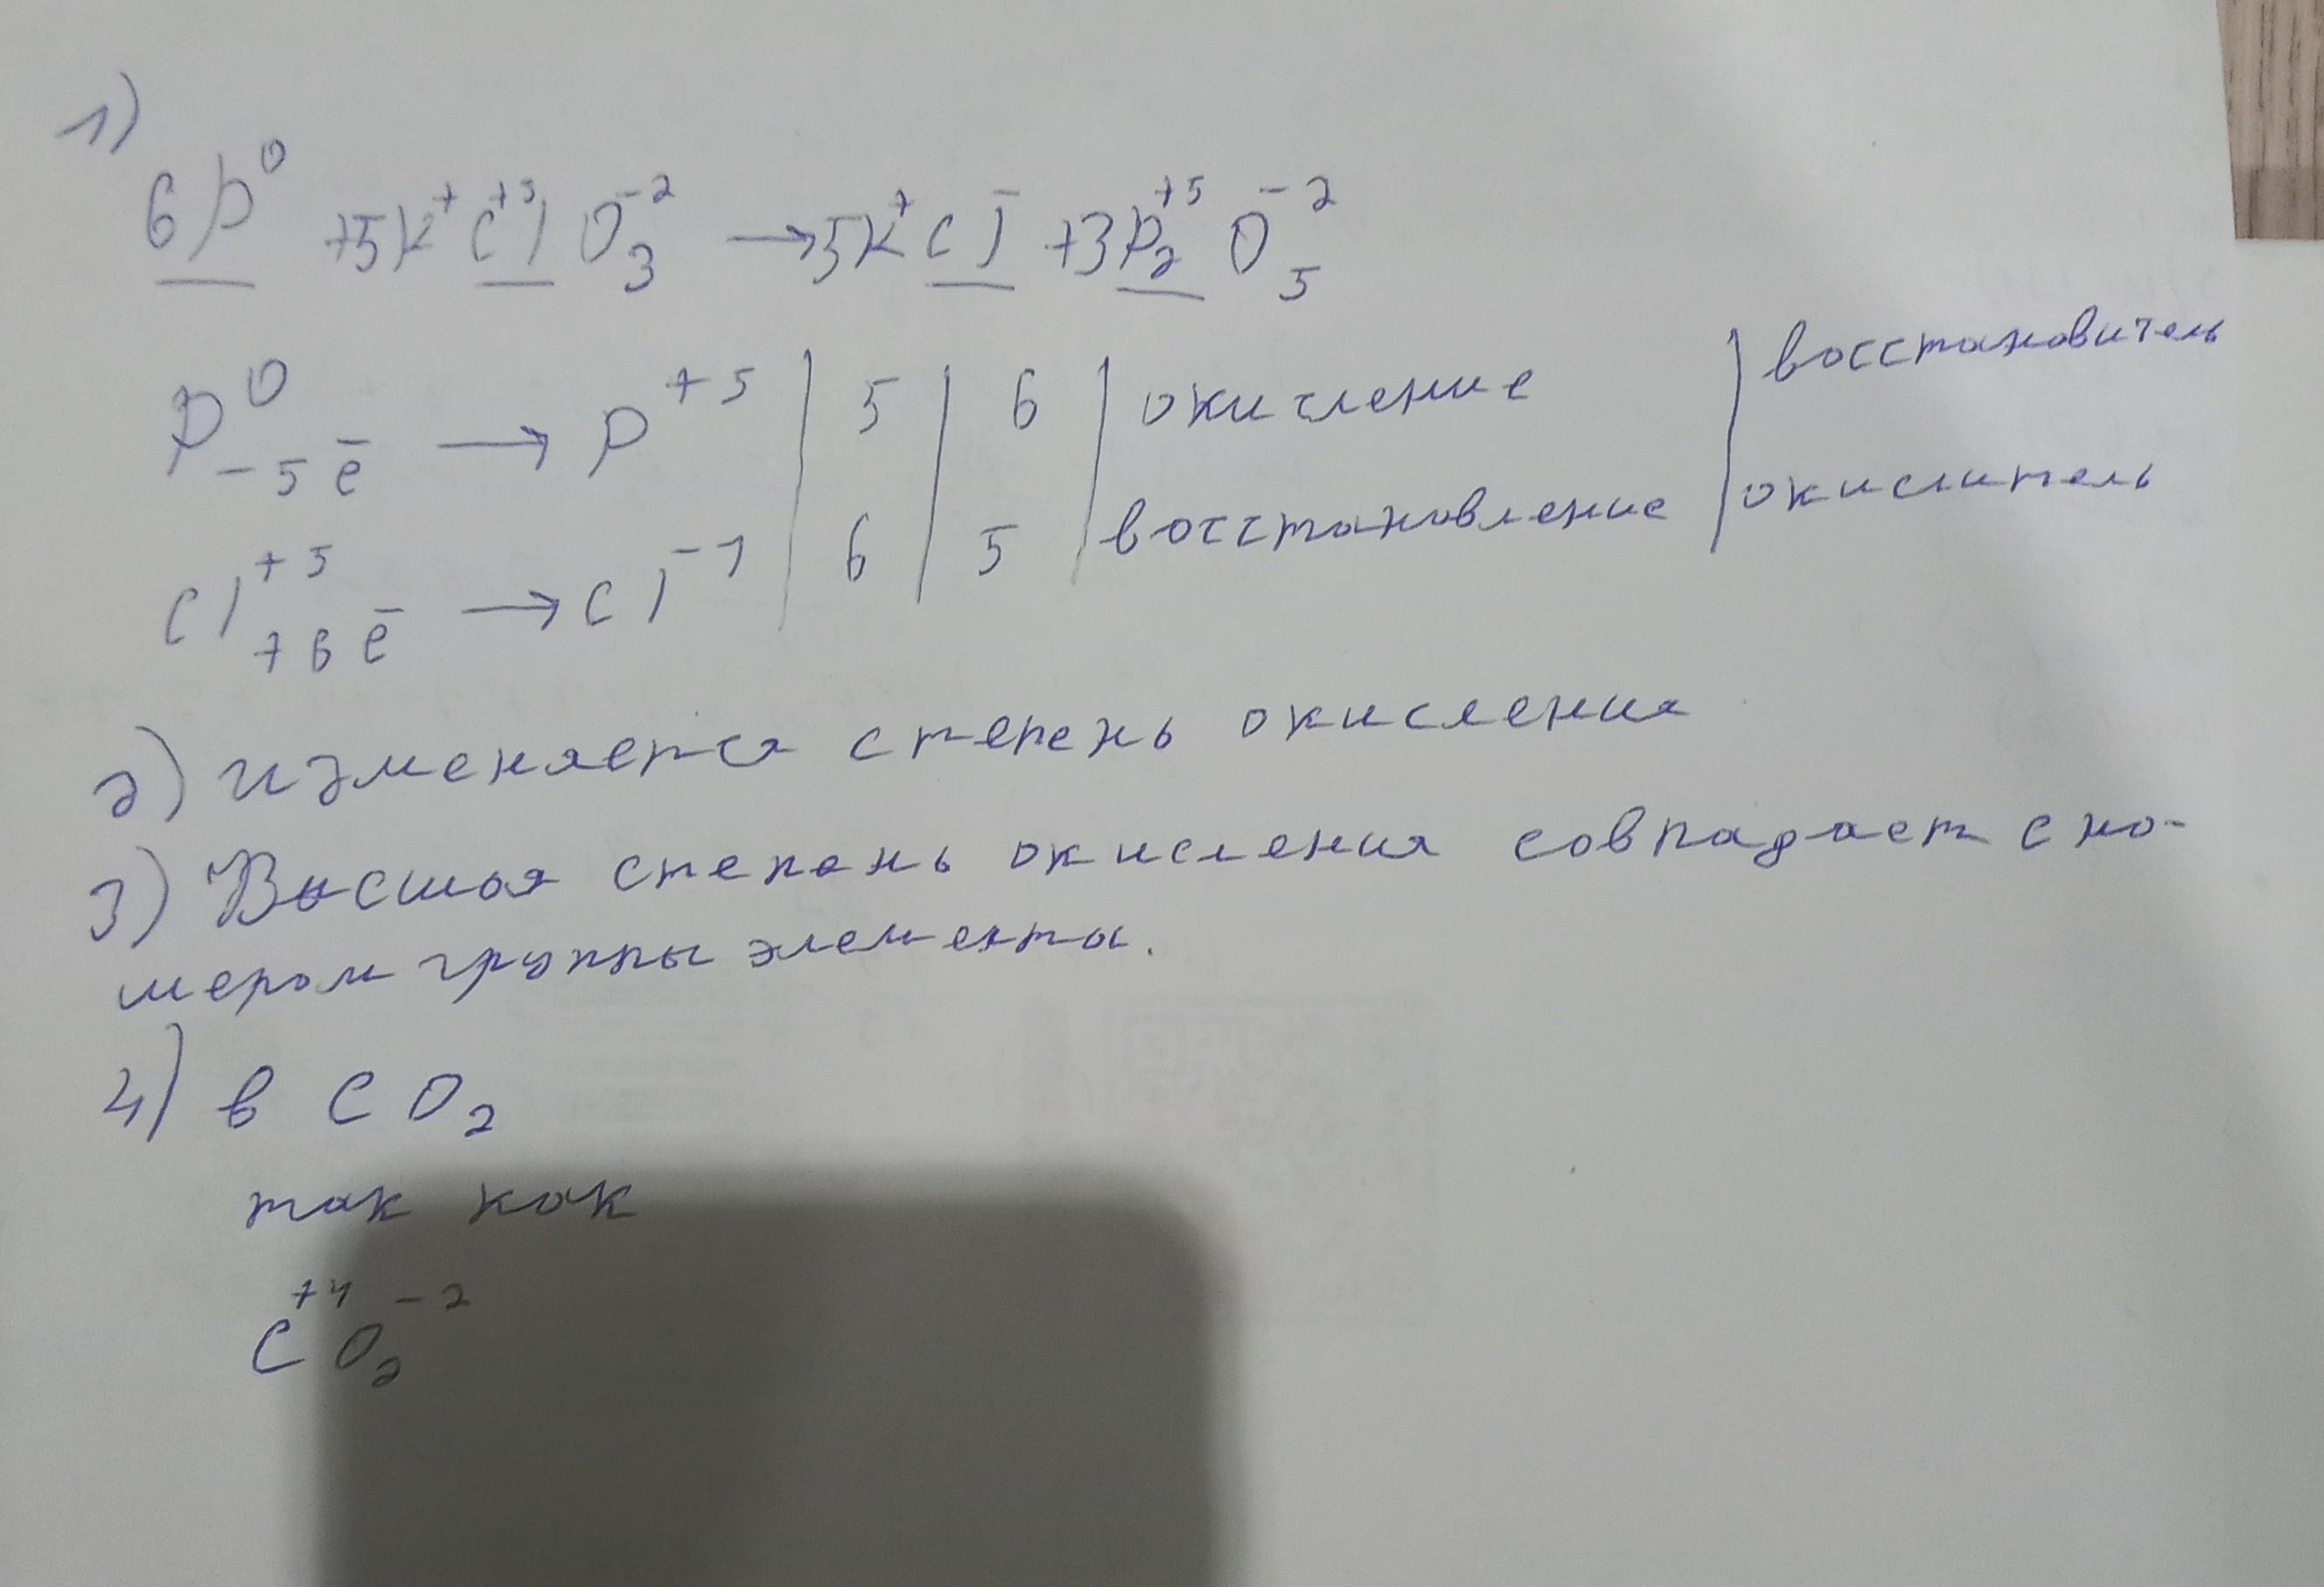 1)
6P⁰ +5K⁺Cl⁺⁵O₃⁻² → 5K⁺Cl⁻ +3P₂⁺⁵O₅⁻²
P⁰ -5ē → P⁺⁵ | 5 | 6 | окисление | восстановитель
Cl⁺⁵ +6ē → Cl⁻¹ | 6 | 5 | восстановление | окислитель
2) изменяется степень окисления
3) Высшая степень окисления совпадает с но-
мером группы элемента.
4) в CO₂
так как
C⁺⁴O₂⁻²